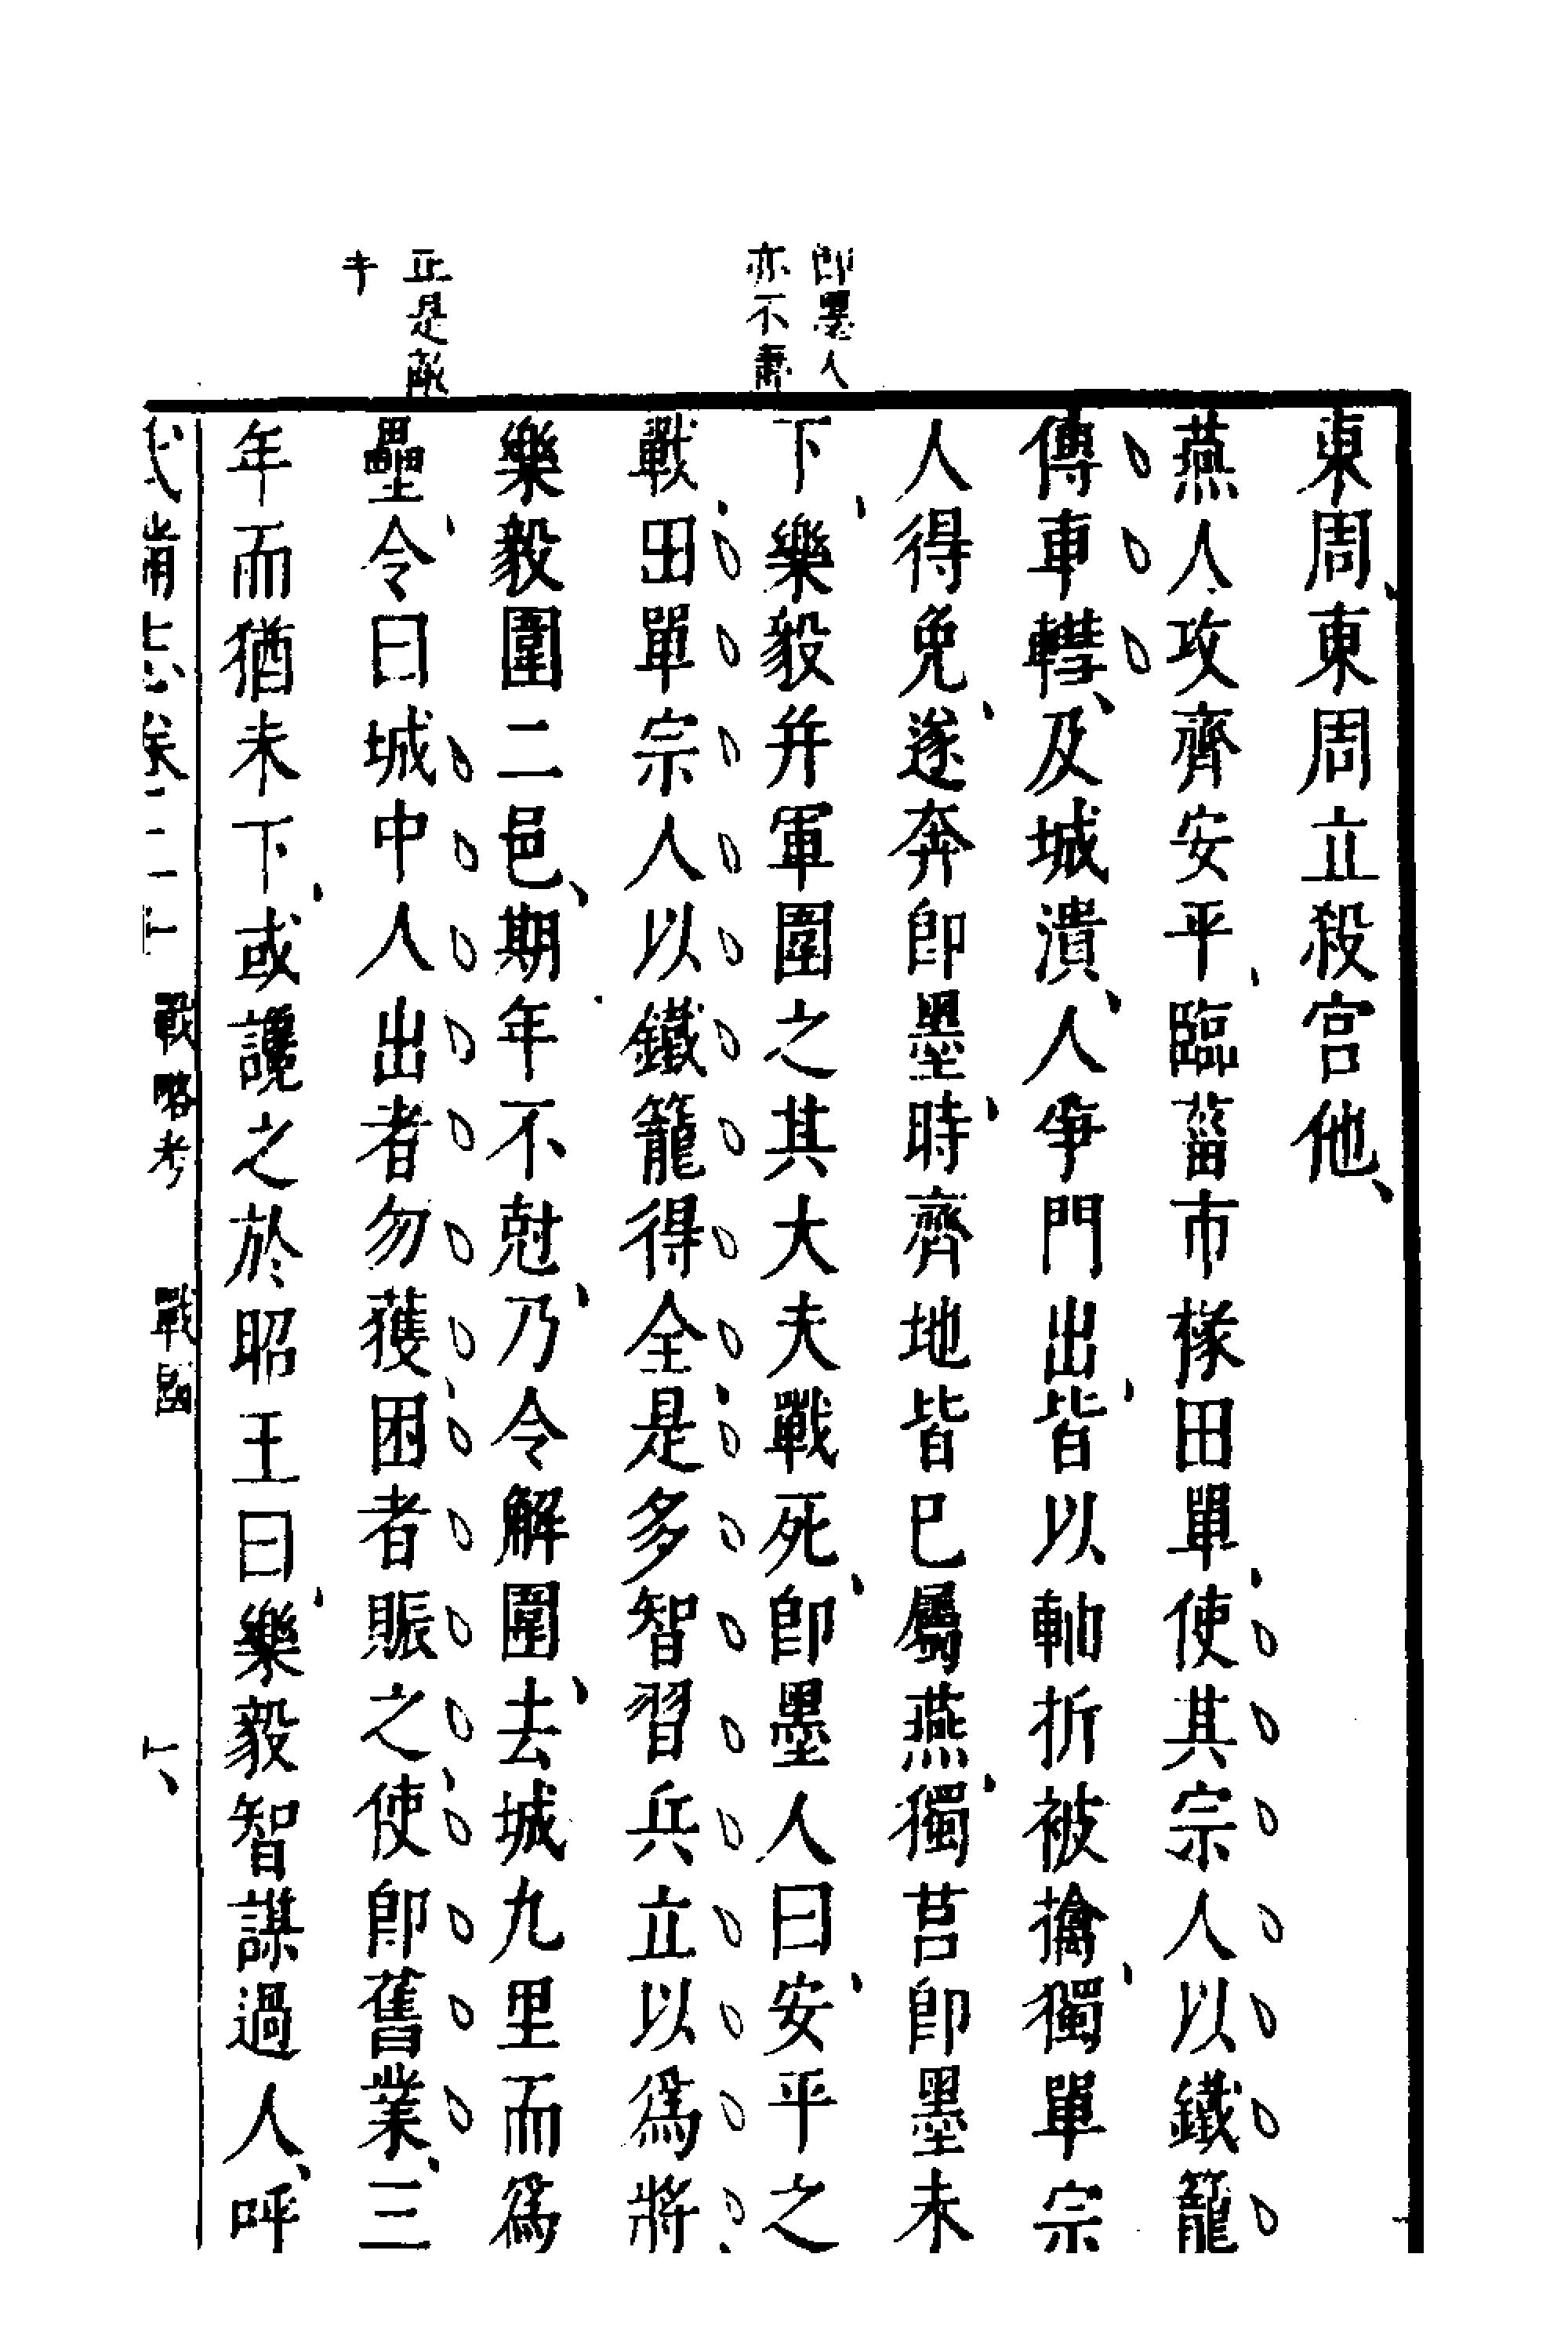 東周東周立殺宫他
燕人攻齊安平臨菑市掾田單使其宗人以鐵籠
傅車轊及城潰人爭門出皆以軸折被擒獨單宗
人得免遂奔即墨時齊地皆巳屬燕獨莒即墨未
即墨人
亦不
下樂毅并軍圍之其大夫戰死即墨人曰安平之
戰田單宗人以鐵籠得全是多智習兵立以爲將
樂毅圍二邑期年不尅乃令解圍去城九里而爲
正是敵
手
壘令曰城中人出者勿獲困者賑之使即舊業三
年而猶未下或讒之於昭王曰樂毅智謀過人呼
戰略考 戰國